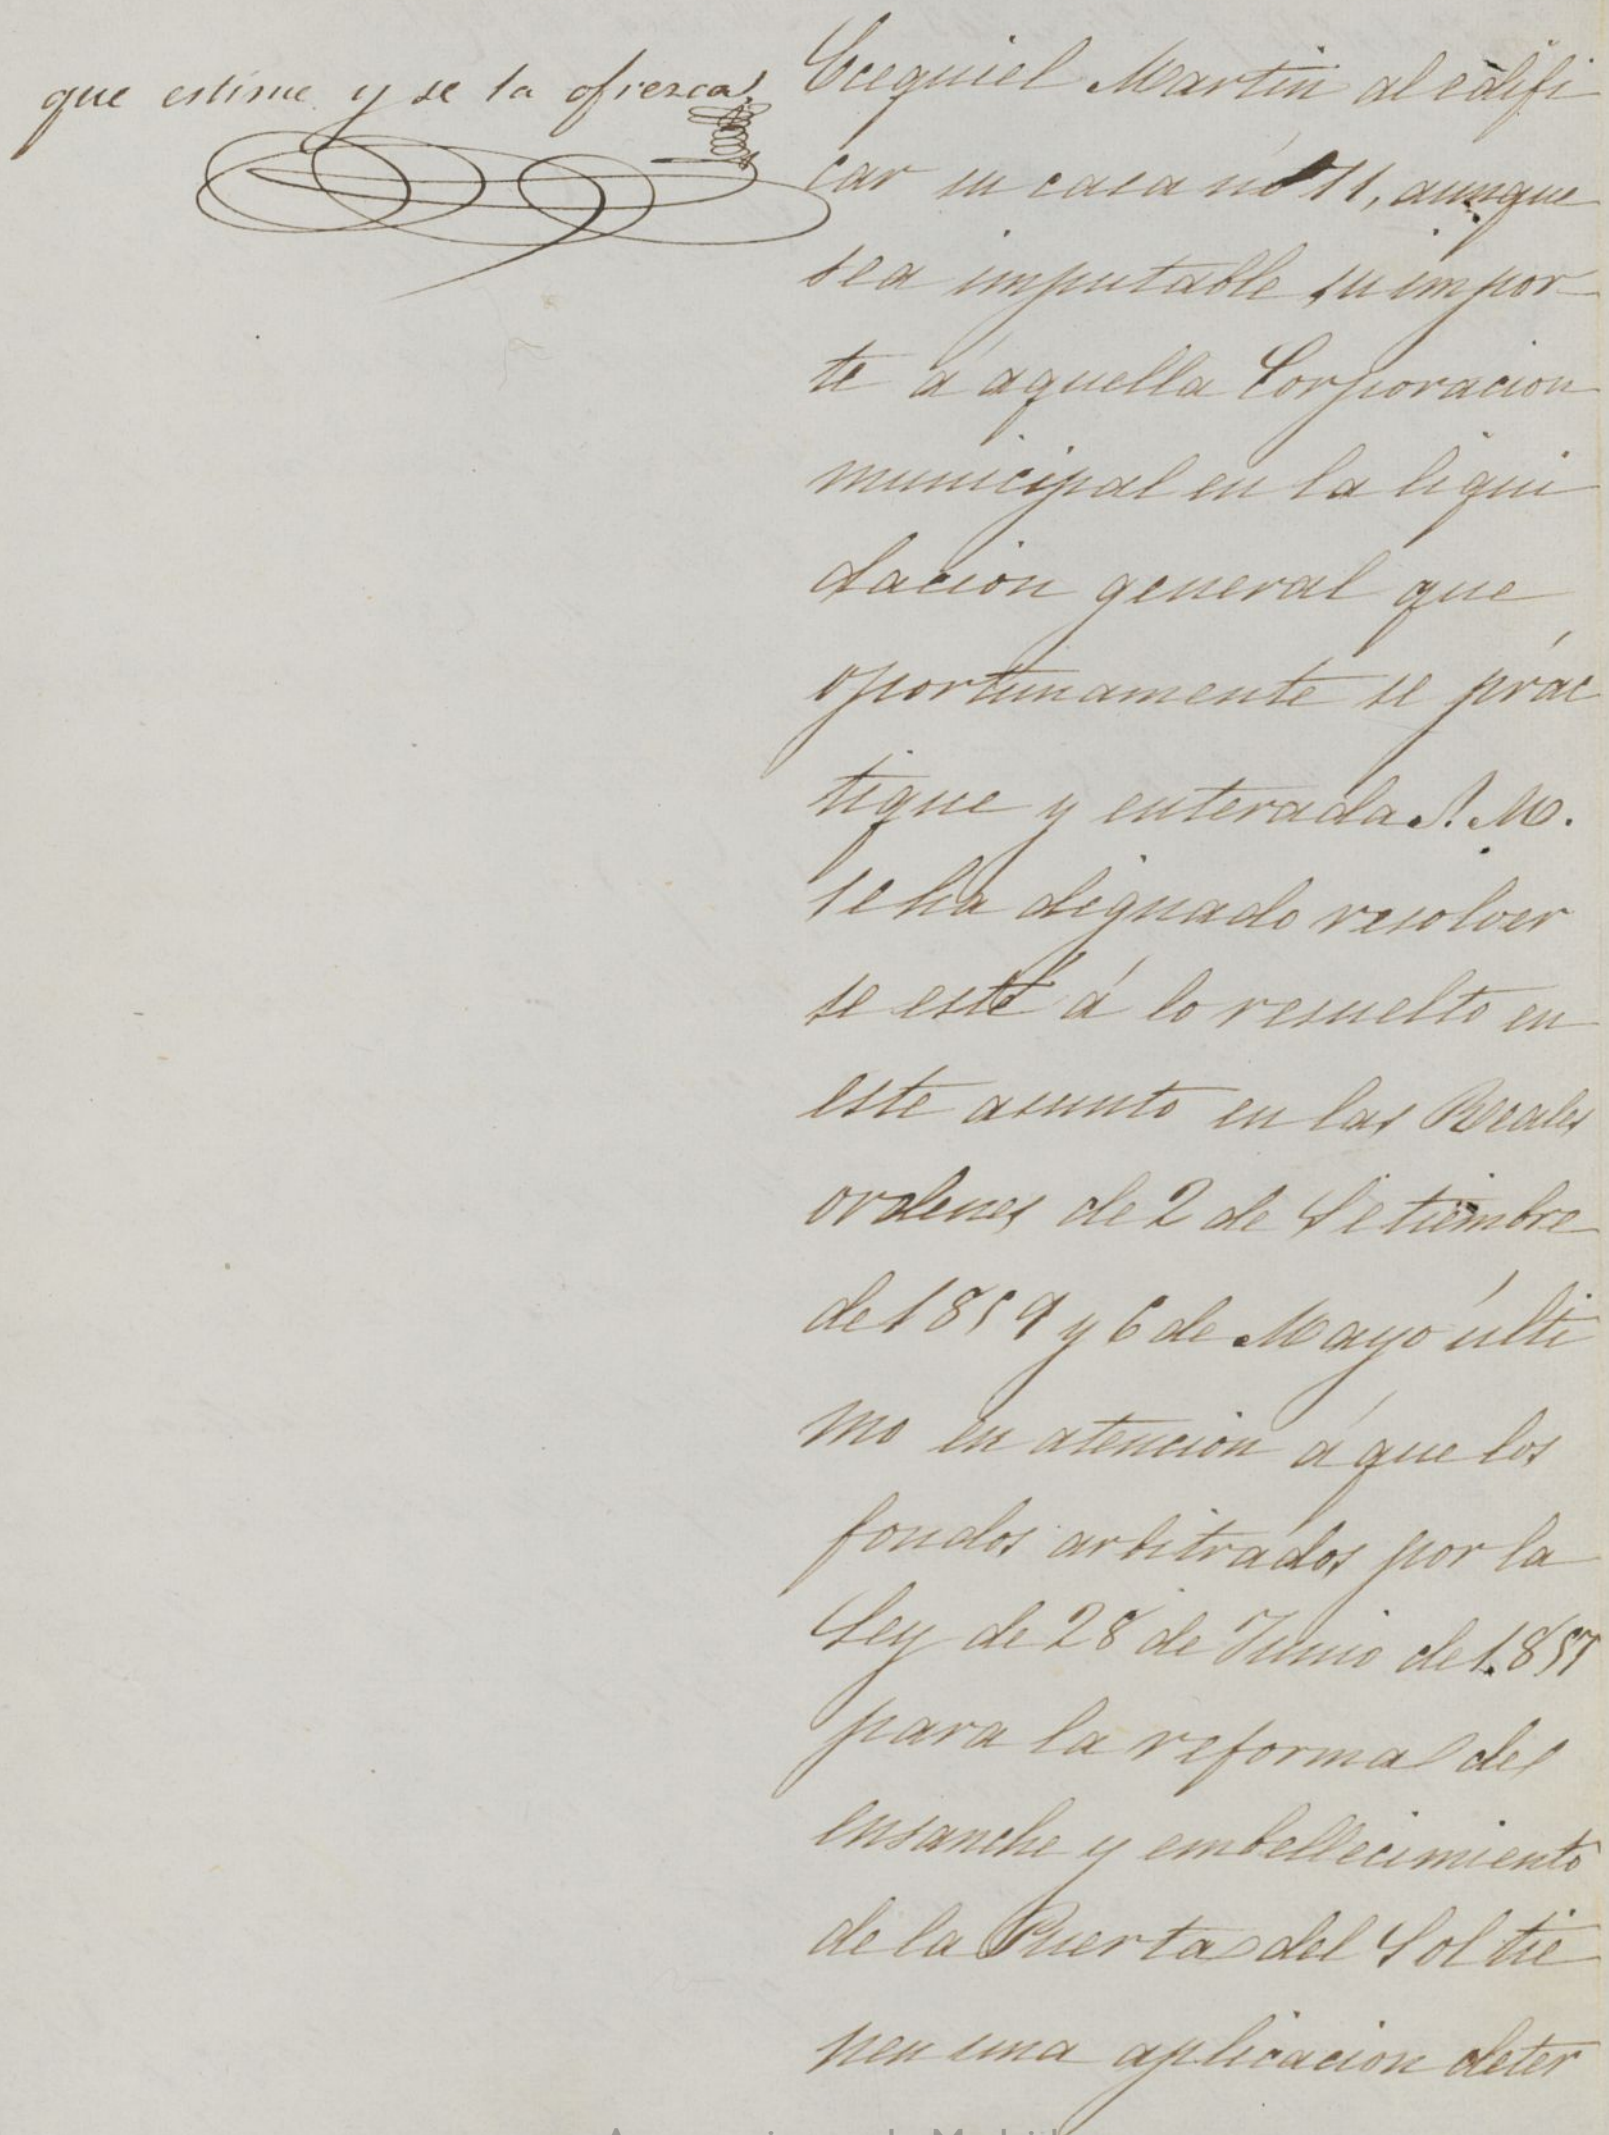 que estime y se la ofresca.
Ecequiel Martin al edifi
car su casa nº 11, aunque
sea imputable su impor-
te á aquella Corporacion
municipal en la liqui
dacion general que
oportunamente se prác
tique y enterada S. M.
se ha dignado resolver
se esté á lo resuelto en
este asunto en las Reales
ordenes de 2 de Setiembre
de 1859 y 6 de Mayo últi
mo en atencion á que los
fondos arbitrados por la
Ley de 28 de Junio de 1.857
para la reforma del
ensanche y embellecimiento
de la Puerta del Sol tie
nen una aplicacion deter